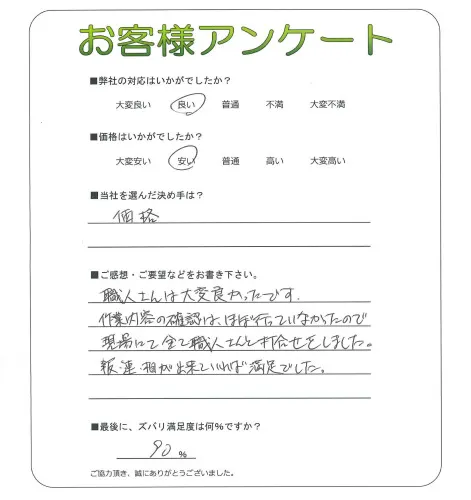 お客様アンケート
■弊社の対応はいかがでしたか?
大変良い 良い 普通 不満 大変不満
■価格はいかがでしたか?
大変安い 安い 普通 高い 大変高い
■当社を選んだ決め手は?
価格
■ご感想・ご要望などをお書き下さい。
職人さんは大変良かったです.
作業内容の確認は、ほぼ行っていなかったので
現場にて全て職人さんと打合せをしました。
報・連・相が出来ていれば満足でした。
■最後に、ズバリ満足度は何%ですか?
90 %
ご協力頂き、誠にありがとうございました。